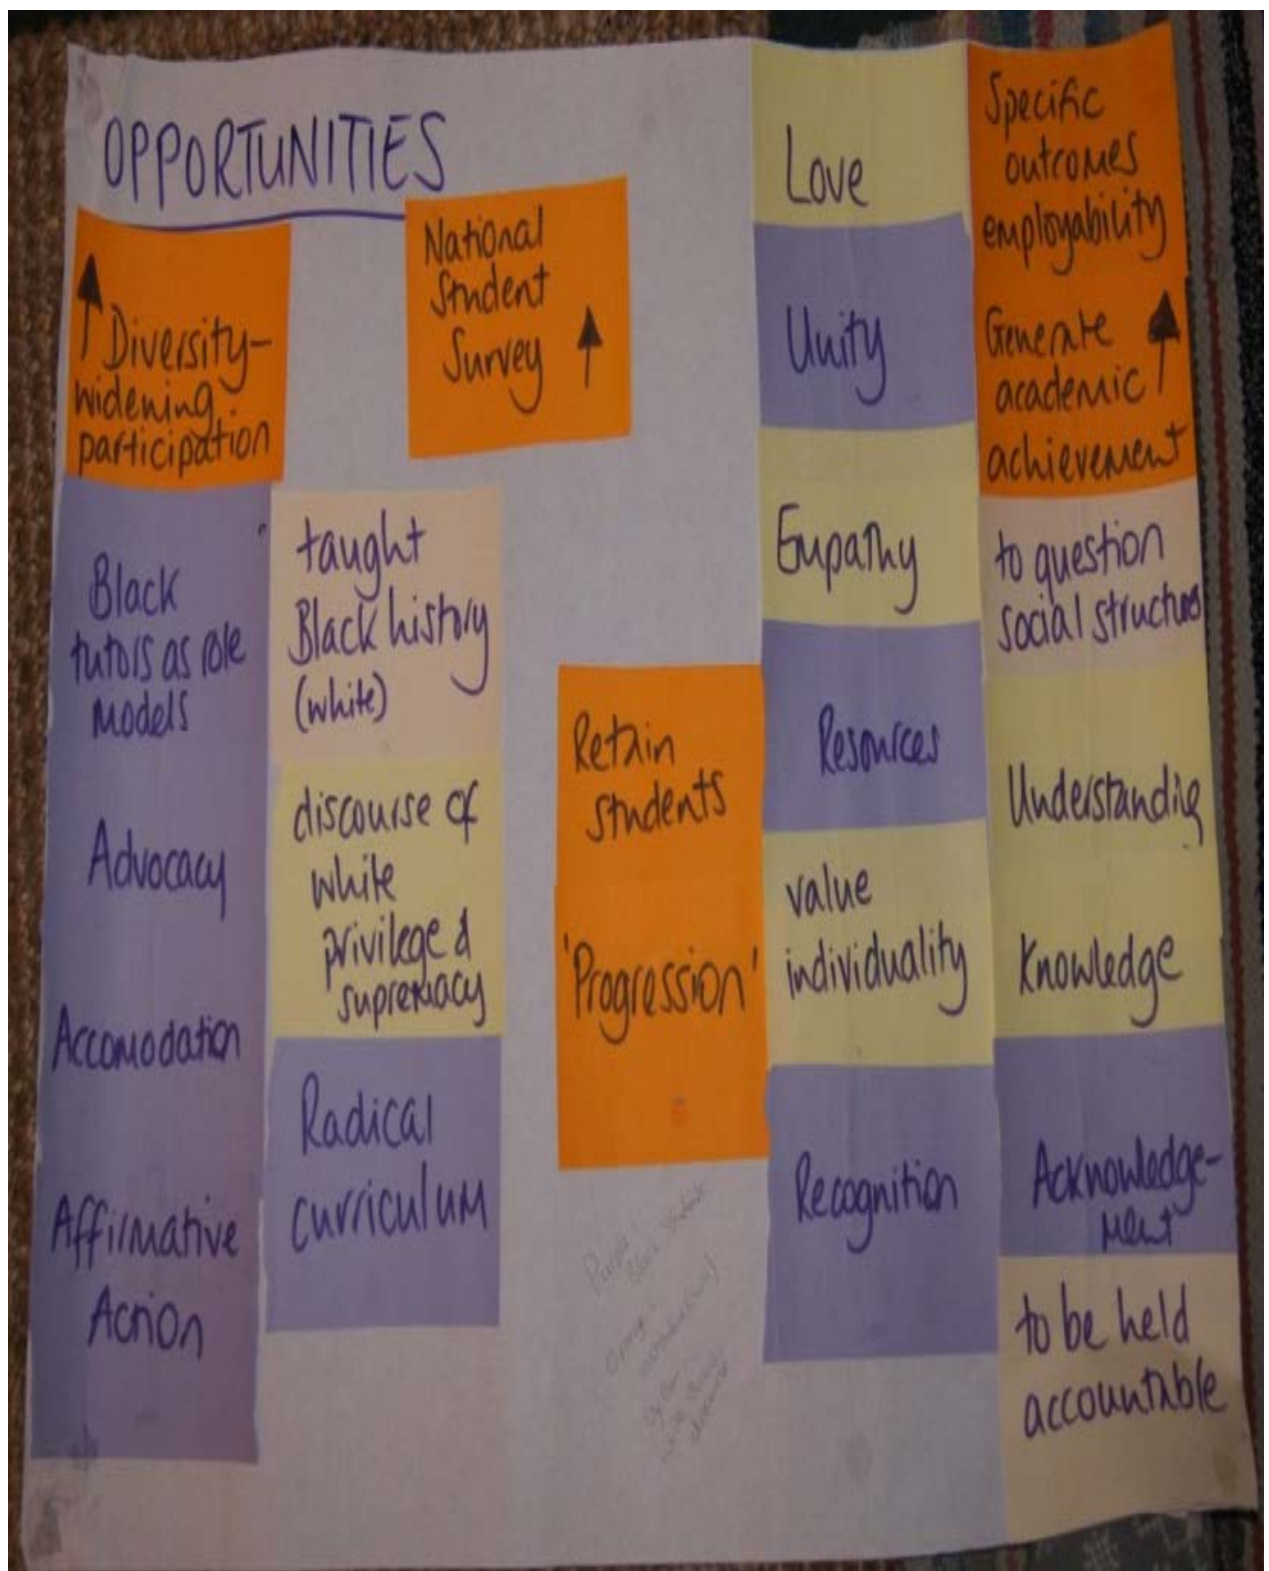 OPPORTUNITIES
Diversity-
widening
participation
National
Student
Survey
Black
tutors as role
models
Advocacy
Accomodation
Affirmative
Action
taught
Black history
(white)
discourse of
white
privilege &
supremacy
Radical
curriculum
Retain
students
'Progression'
Love
Unity
Empathy
Resources
value
individuality
Recognition
Specific
outcomes
employability
Generate
academic
achievement
to question
social structures
Understanding
Knowledge
Acknowledge-
ment
to be held
accountable
Purple:
Black students